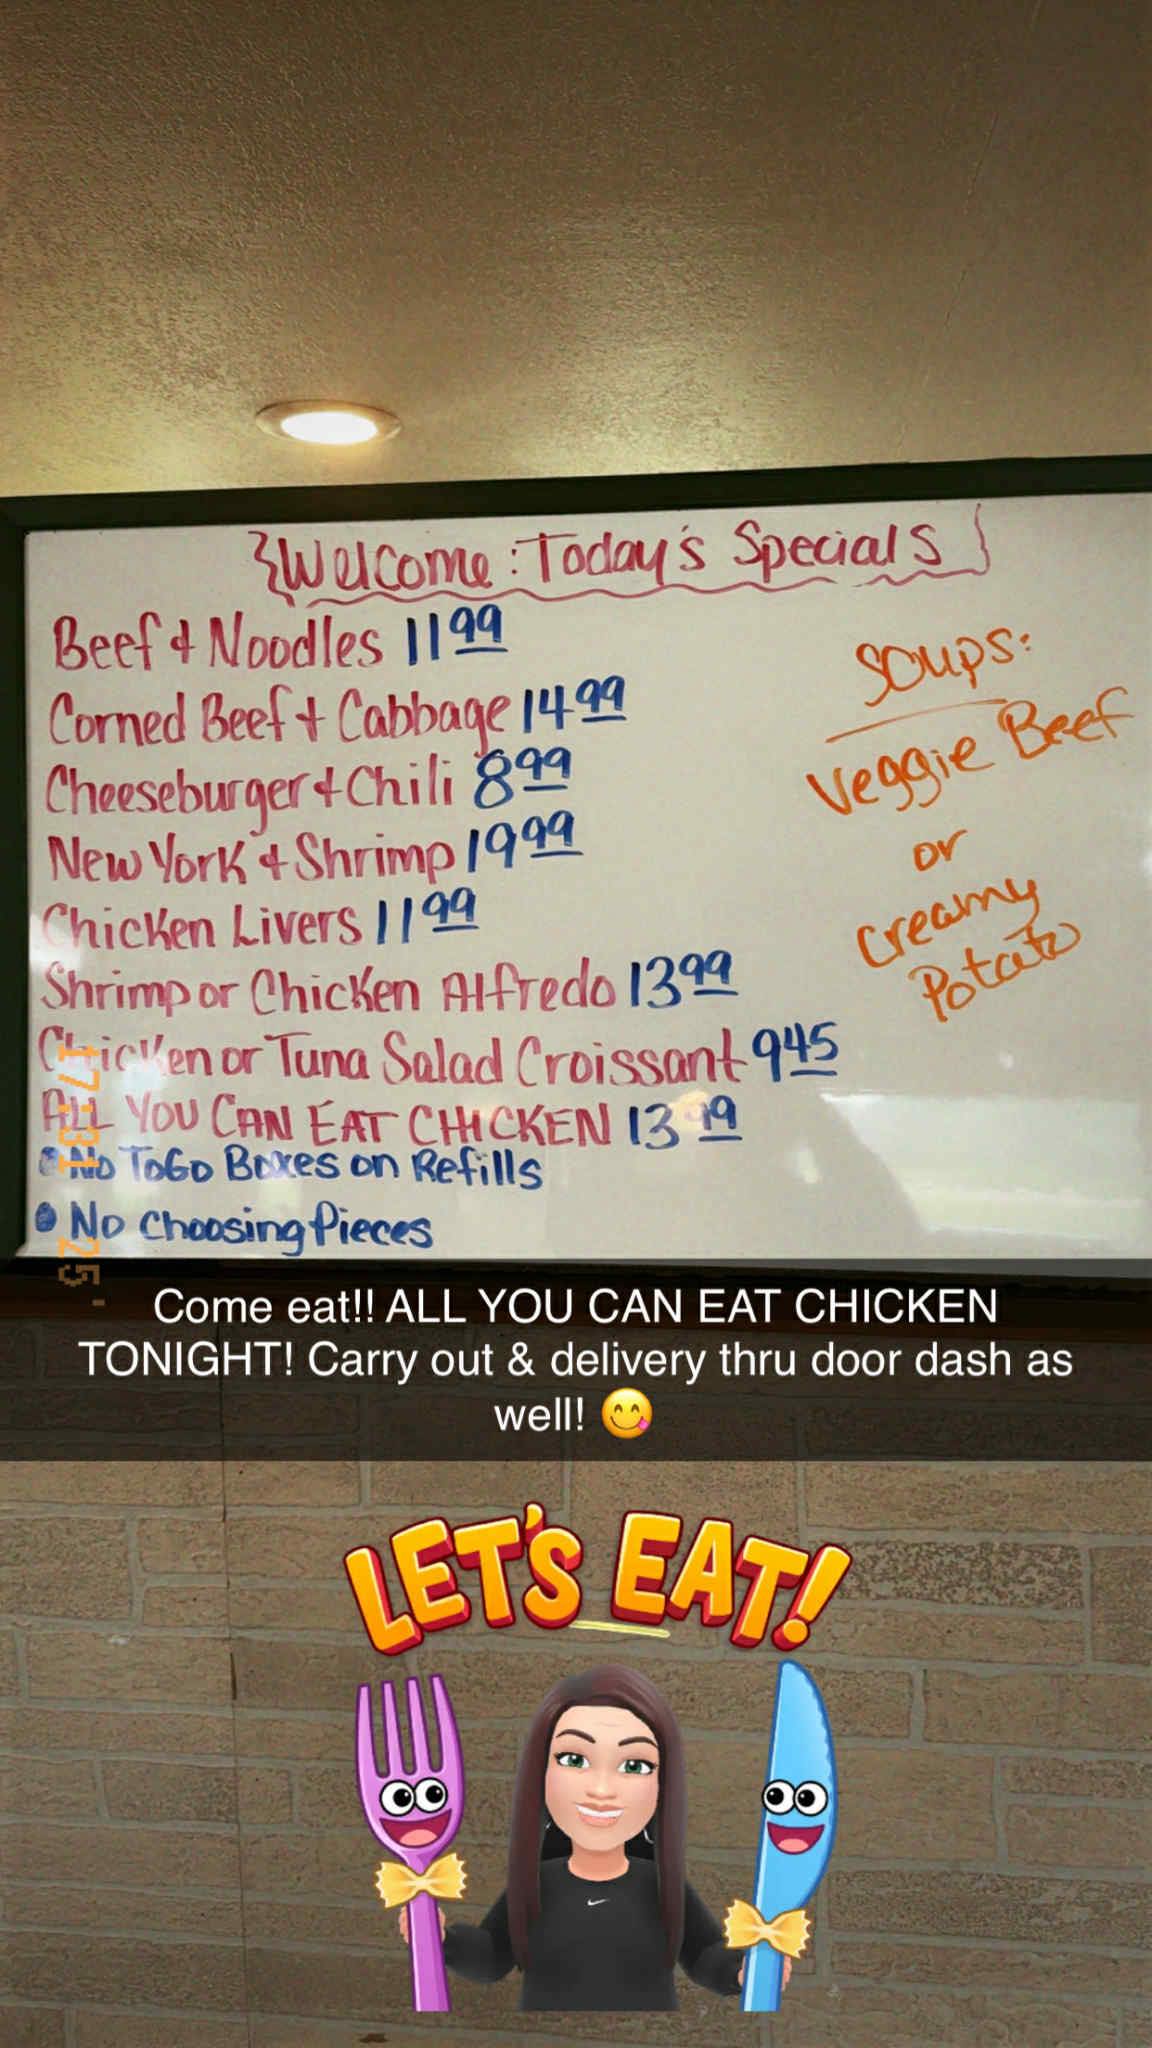 {Welcome: Today's Specials}
Beef & Noodles 11 99
Corned Beef + Cabbage 14 99
Cheeseburger + Chili 8 99
New York & Shrimp 19 99
Chicken Livers 11 99
Shrimp or Chicken Alfredo 13 99
Chicken or Tuna Salad Croissant 9 45
ALL YOU CAN EAT CHICKEN 13 99
• No ToGo Boxes on Refills
• No Choosing Pieces
Soups:
Veggie Beef
or
Creamy
Potato
Come eat!! ALL YOU CAN EAT CHICKEN
TONIGHT! Carry out & delivery thru door dash as
well! 😋
LET'S EAT!